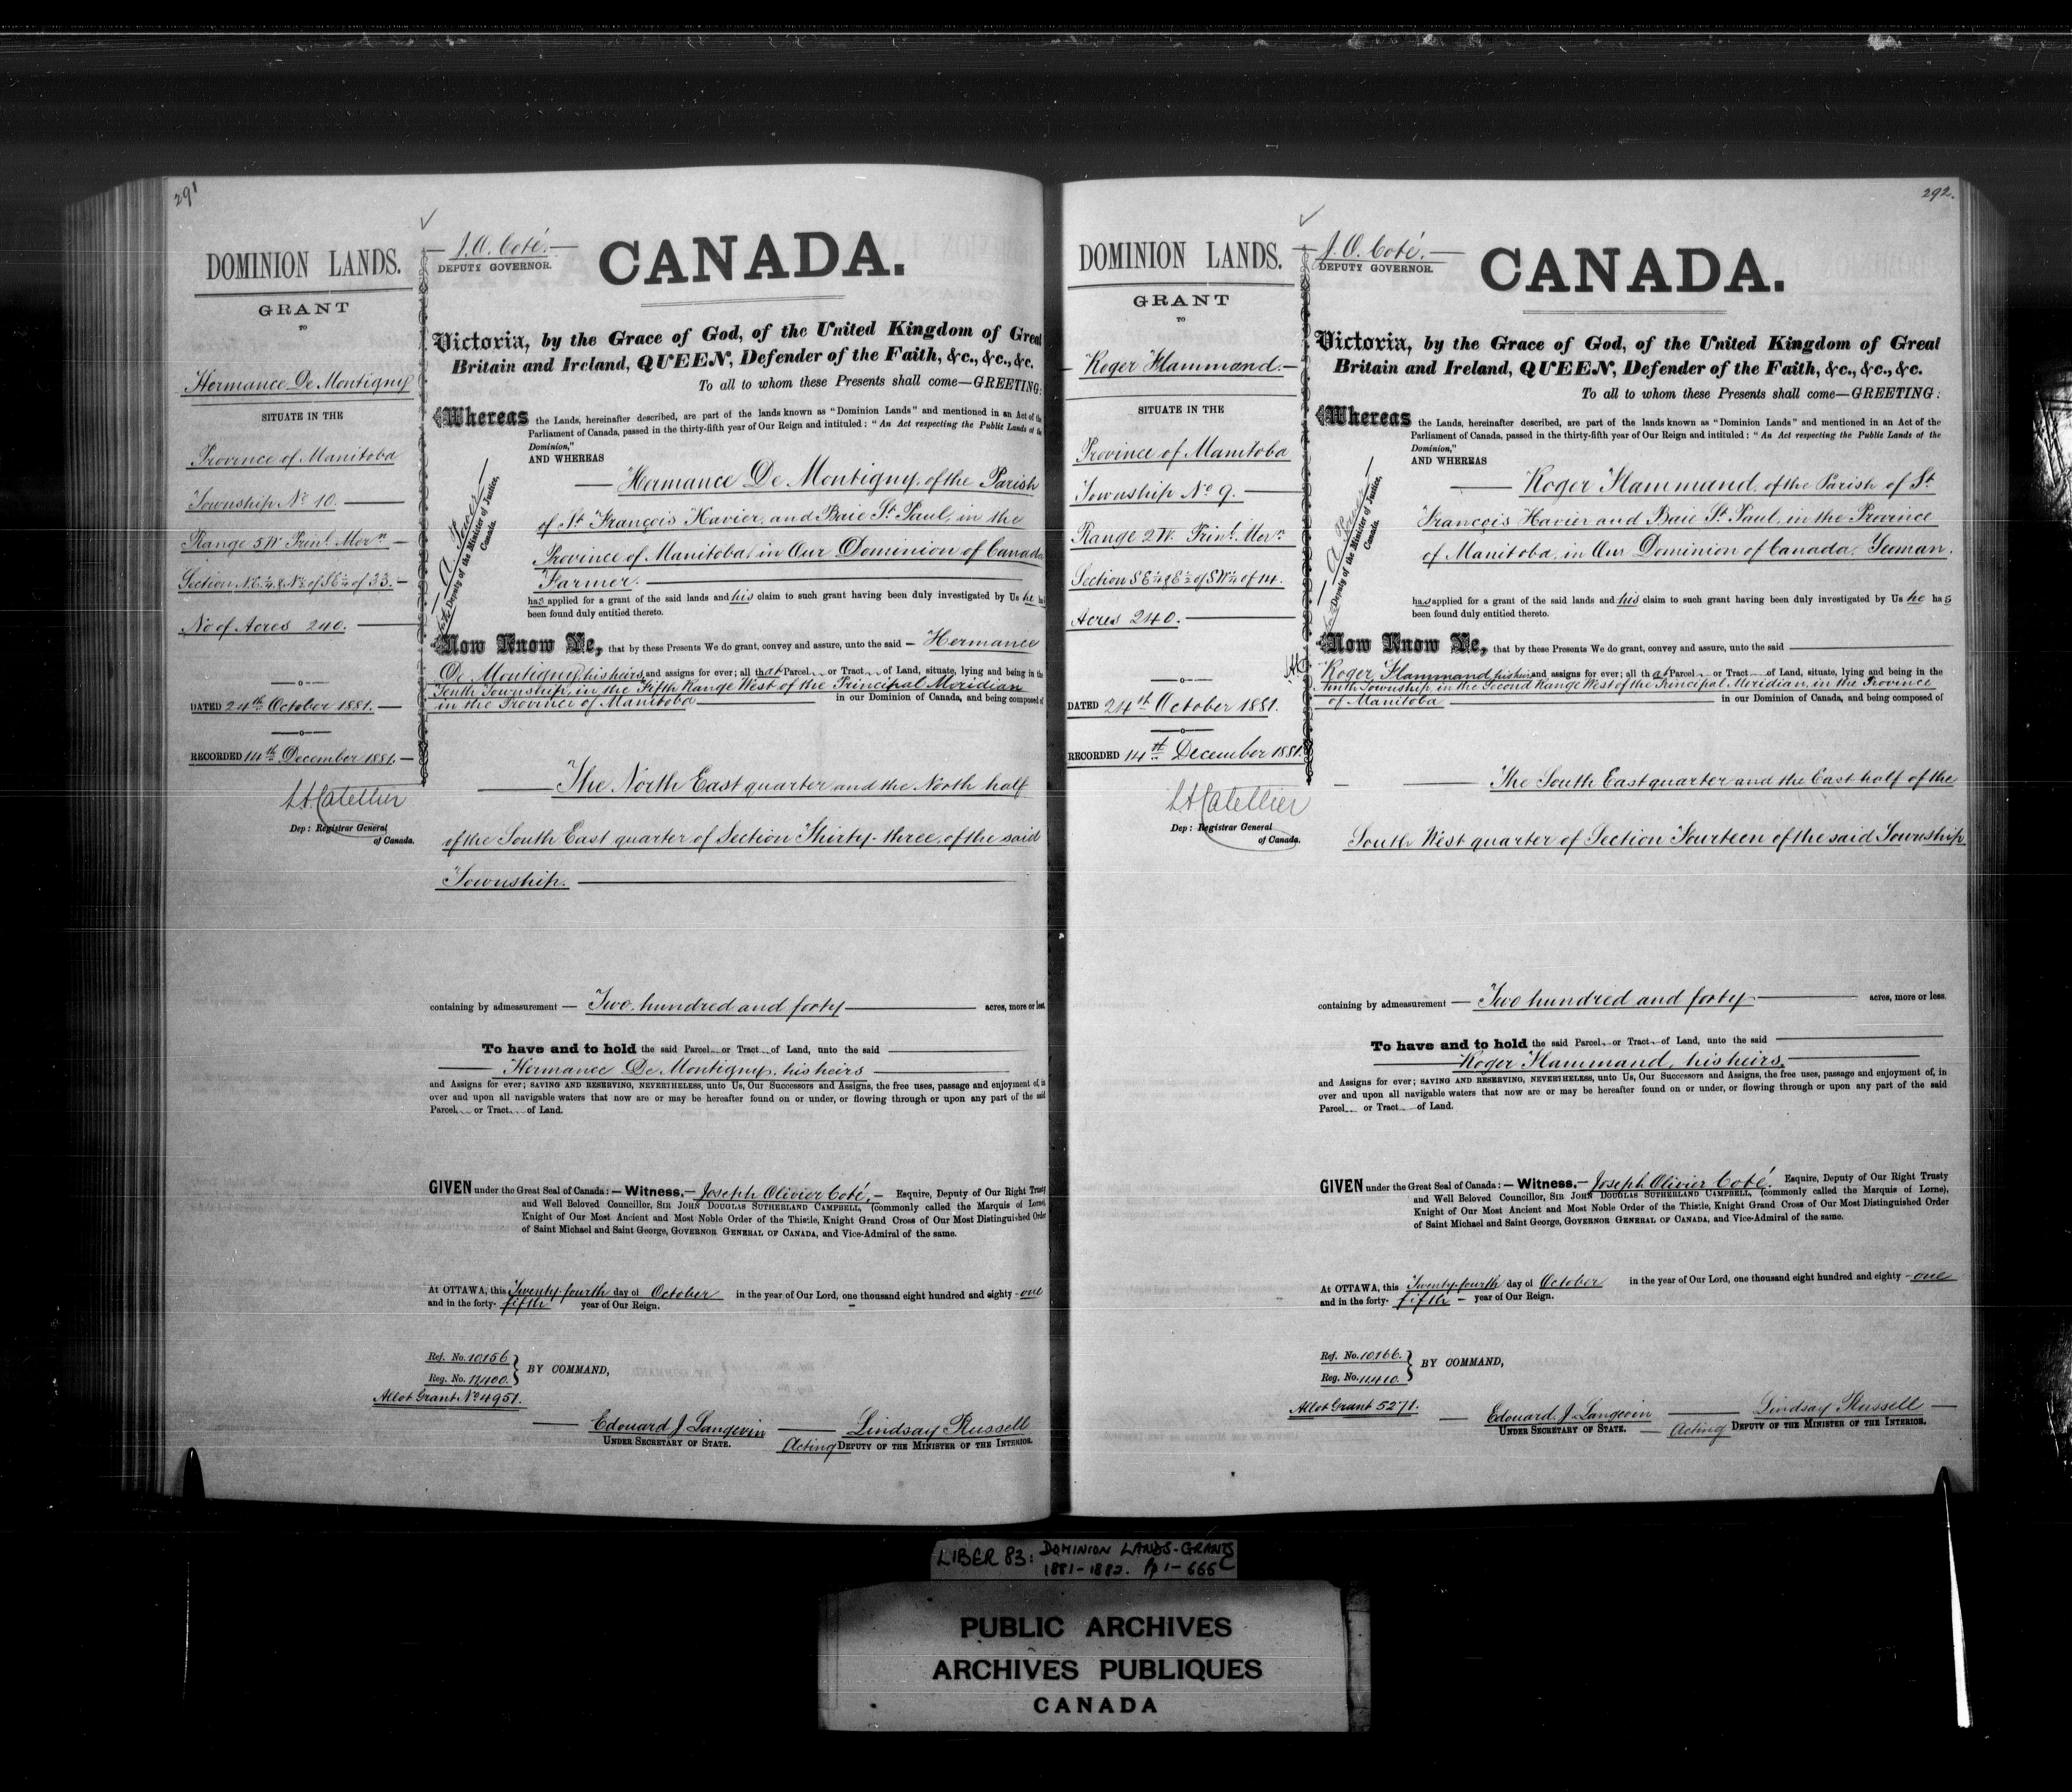 291
DOMINION LANDS.
GRANT
TO
Hermance De Montigny
SITUATE IN THE
Province of Manitoba
Township No 10.
Range 5 W Prinl. Mern
Section N.E ¼ & N ½ of S E ¼ of 33.
No of Acres 240.
DATED 24th October 1881.
RECORDED 14th December 1881.
Dep: Registrar General
of Canada.
J. O. Coté.
DEPUTY GOVERNOR.
CANADA.
Victoria, by the Grace of God, of the United Kingdom of Great
Britain and Ireland, QUEEN, Defender of the Faith, &c., &c., &c.
To all to whom these Presents shall come—GREETING:
Whereas the Lands, hereinafter described, are part of the lands known as "Dominion Lands" and mentioned in an Act of the
Parliament of Canada, passed in the thirty-fifth year of Our Reign and intituled: "An Act respecting the Public Lands of the
Dominion,"
AND WHEREAS
Hermance De Montigny, of the Parish
of St François Xavier, and Baie St Paul, in the
Province of Manitoba, in Our Dominion of Canada
Farmer.
has applied for a grant of the said lands and his claim to such grant having been duly investigated by Us he has
been found duly entitled thereto.
Deputy of the Minister of Justice,
Canada.
Now Know Ye, that by these Presents We do grant, convey and assure, unto the said — Hermance
De Montigny, his heirs, and assigns for ever; all that Parcel or Tract of Land, situate, lying and being in the
Tenth Township, in the Fifth Range West of the Principal Meridian
in the Province of Manitoba in our Dominion of Canada, and being composed of
The North East quarter and the North half
of the South East quarter of Section Thirty-three, of the said
Township.
containing by admeasurement — Two hundred and forty acres, more or less.
To have and to hold the said Parcel or Tract of Land, unto the said
Hermance De Montigny, his heirs
and Assigns for ever; SAVING AND RESERVING, NEVERTHELESS, unto Us, Our Successors and Assigns, the free uses, passage and enjoyment of, in
over and upon all navigable waters that now are or may be hereafter found on or under, or flowing through or upon any part of the said
Parcel or Tract of Land.
GIVEN under the Great Seal of Canada: — Witness, — Joseph Olivier Coté, — Esquire, Deputy of Our Right Trusty
and Well Beloved Councillor, SIR JOHN DOUGLAS SUTHERLAND CAMPBELL, (commonly called the Marquis of Lorne),
Knight of Our Most Ancient and Most Noble Order of the Thistle, Knight Grand Cross of Our Most Distinguished Order
of Saint Michael and Saint George, GOVERNOR GENERAL OF CANADA, and Vice-Admiral of the same.
At OTTAWA, this Twenty-fourth day of October in the year of Our Lord, one thousand eight hundred and eighty-one
and in the forty-fifth year of Our Reign.
Ref. No. 10,156
BY COMMAND,
Reg. No. 11,400.
Allot Grant No 4951.
Edouard J. Langevin
UNDER SECRETARY OF STATE.
Lindsay Russell
Acting DEPUTY OF THE MINISTER OF THE INTERIOR.
292.
DOMINION LANDS.
GRANT
TO
Roger Hammond.
SITUATE IN THE
Province of Manitoba
Township No 9.
Range 2 W. Prinl. Mern
Section S E ¼ & E ½ of S W ¼ of 14.
Acres 240.
DATED 24th October 1881.
RECORDED 14th December 1881.
Dep: Registrar General
of Canada.
J. O. Coté.
DEPUTY GOVERNOR.
CANADA.
Victoria, by the Grace of God, of the United Kingdom of Great
Britain and Ireland, QUEEN, Defender of the Faith, &c., &c., &c.
To all to whom these Presents shall come—GREETING:
Whereas the Lands, hereinafter described, are part of the lands known as "Dominion Lands" and mentioned in an Act of the
Parliament of Canada, passed in the thirty-fifth year of Our Reign and intituled: "An Act respecting the Public Lands of the
Dominion,"
AND WHEREAS
Roger Hammond, of the Parish of St
François Xavier and Baie St Paul, in the Province
of Manitoba, in Our Dominion of Canada, Yeoman.
has applied for a grant of the said lands and his claim to such grant having been duly investigated by Us he has
been found duly entitled thereto.
Deputy of the Minister of Justice,
Canada.
Now Know Ye, that by these Presents We do grant, convey and assure, unto the said
Roger Hammond, his heirs, and assigns for ever; all that Parcel or Tract of Land, situate, lying and being in the
Ninth Township, in the Second Range West of the Principal Meridian, in the Province
of Manitoba in our Dominion of Canada, and being composed of
The South East quarter and the East half of the
South West quarter of Section Fourteen of the said Township.
containing by admeasurement — Two hundred and forty acres, more or less.
To have and to hold the said Parcel or Tract of Land, unto the said
Roger Hammond, his heirs,
and Assigns for ever; SAVING AND RESERVING, NEVERTHELESS, unto Us, Our Successors and Assigns, the free uses, passage and enjoyment of, in
over and upon all navigable waters that now are or may be hereafter found on or under, or flowing through or upon any part of the said
Parcel or Tract of Land.
GIVEN under the Great Seal of Canada: — Witness, — Joseph Olivier Coté. Esquire, Deputy of Our Right Trusty
and Well Beloved Councillor, SIR JOHN DOUGLAS SUTHERLAND CAMPBELL, (commonly called the Marquis of Lorne),
Knight of Our Most Ancient and Most Noble Order of the Thistle, Knight Grand Cross of Our Most Distinguished Order
of Saint Michael and Saint George, GOVERNOR GENERAL OF CANADA, and Vice-Admiral of the same.
At OTTAWA, this Twenty-fourth day of October in the year of Our Lord, one thousand eight hundred and eighty-one
and in the forty-fifth — year of Our Reign.
Ref. No. 10,166.
BY COMMAND,
Reg. No. 11,410.
Allot Grant 5271.
Edouard J. Langevin
UNDER SECRETARY OF STATE.
Lindsay Russell
Acting DEPUTY OF THE MINISTER OF THE INTERIOR.
LIBER 83: DOMINION LANDS-GRANTS
1881-1882. Pp 1-666
PUBLIC ARCHIVES
ARCHIVES PUBLIQUES
CANADA